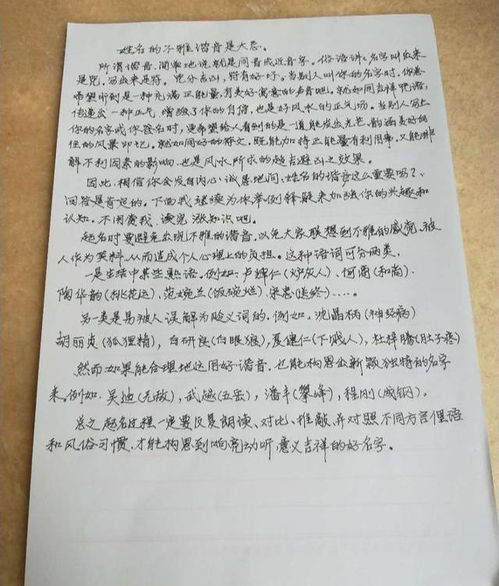 姓名的不雅谐音是大忌。
所谓谐音，简单地说就是同音或近音字。俗话讲：名字叫出来
是咒，写出来是符。免分吉凶，符有好坏。当别人叫你的名字时，你意
希望听到是一种充满正能量，有美好寓意的声音吧。就如同吉祥咒语，
传递出一种正气，增强了你的自信，也是好风水的正气场。当别人写
你的名字或你签名时，更希望给人看到的是一道能发出光芒，韵涵美好自
信的风景印记。就如同好的符文，既能加持正能量有利因素，又能排
解不利因素的影响，也是风水所求的趋吉避凶之效果。
因此，相信你会发自内心，诚恳地问，姓名的谐音这么重要吗？
回答是肯定的。下面我继续为你举例解疑来加强你的兴趣和
认知，不用费我，读览涨知识吧。
起名时要避免出现不雅的谐音，以免大家联想到不雅的感觉，被
人作为笑料，从而造成个人心理上的负担。这种谐词可分两类，
一是生活中某些熟语。例如：卢辉仁（炉灰人），何商（和尚），
陶华韵（桃花运），范婉兰（饭碗烂），宋忠（送终）……。
另一类是易被人误解为贬义词的，例如，沈晶柄（神经病）
胡丽炎（狐狸精），白研良（白眼狼），夏健仁（下贱人），杜梓腾（肚子疼）
然而如果能合理地运用好谐音，也能构思出新颖独特的名字
来。例如，吴迪（无敌），武越（五岳），潘丰（攀峰），程刚（成钢）。
总之起名过程一定要反复朗读、对比、推敲，并对照不同方言俚语
和风俗习惯，才能构思到响亮动听，意义吉祥的好名字。